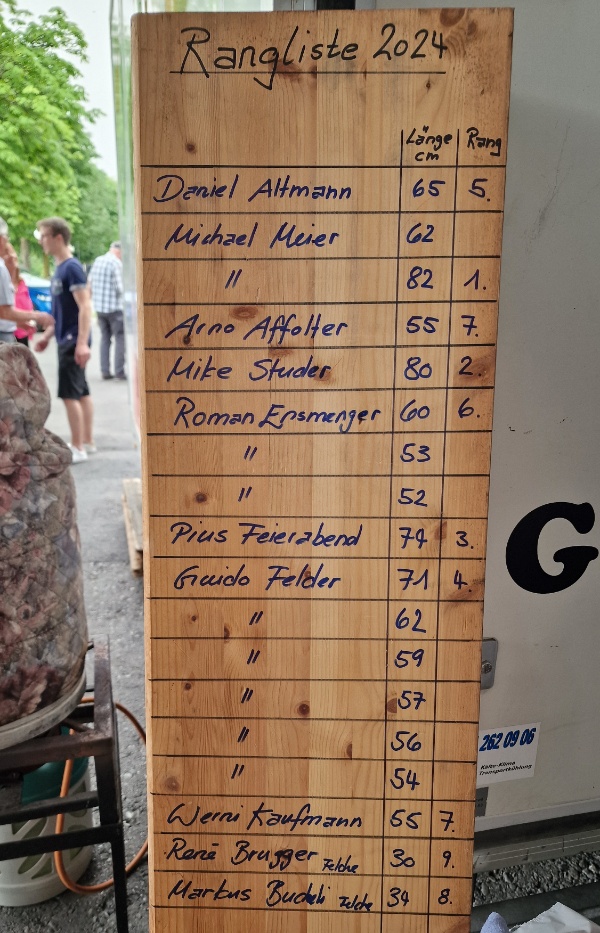 Rangliste 2024
Länge cm Rang
Daniel Altmann 65 5.
Michael Meier 62
" 82 1.
Arno Affolter 55 7.
Mike Studer 80 2.
Roman Ensmenger 60 6.
" 53
" 52
Pius Feierabend 74 3.
Guido Felder 71 4.
" 62
" 59
" 57
" 56
" 54
Werni Kaufmann 55 7.
René Brugger Felche 30 9.
Markus Felche 34 8.
G
262 09 06
Kälte-Klima
Transportkühlung